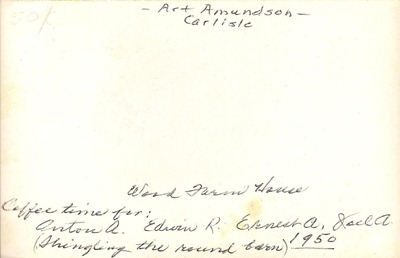 50¢
- Art Amundson -
Carlisle
Wood Farm House
Coffee time for:
Anton A. Edwin R. Ernest A, Joel A.
(Shingling the round barn) 1950